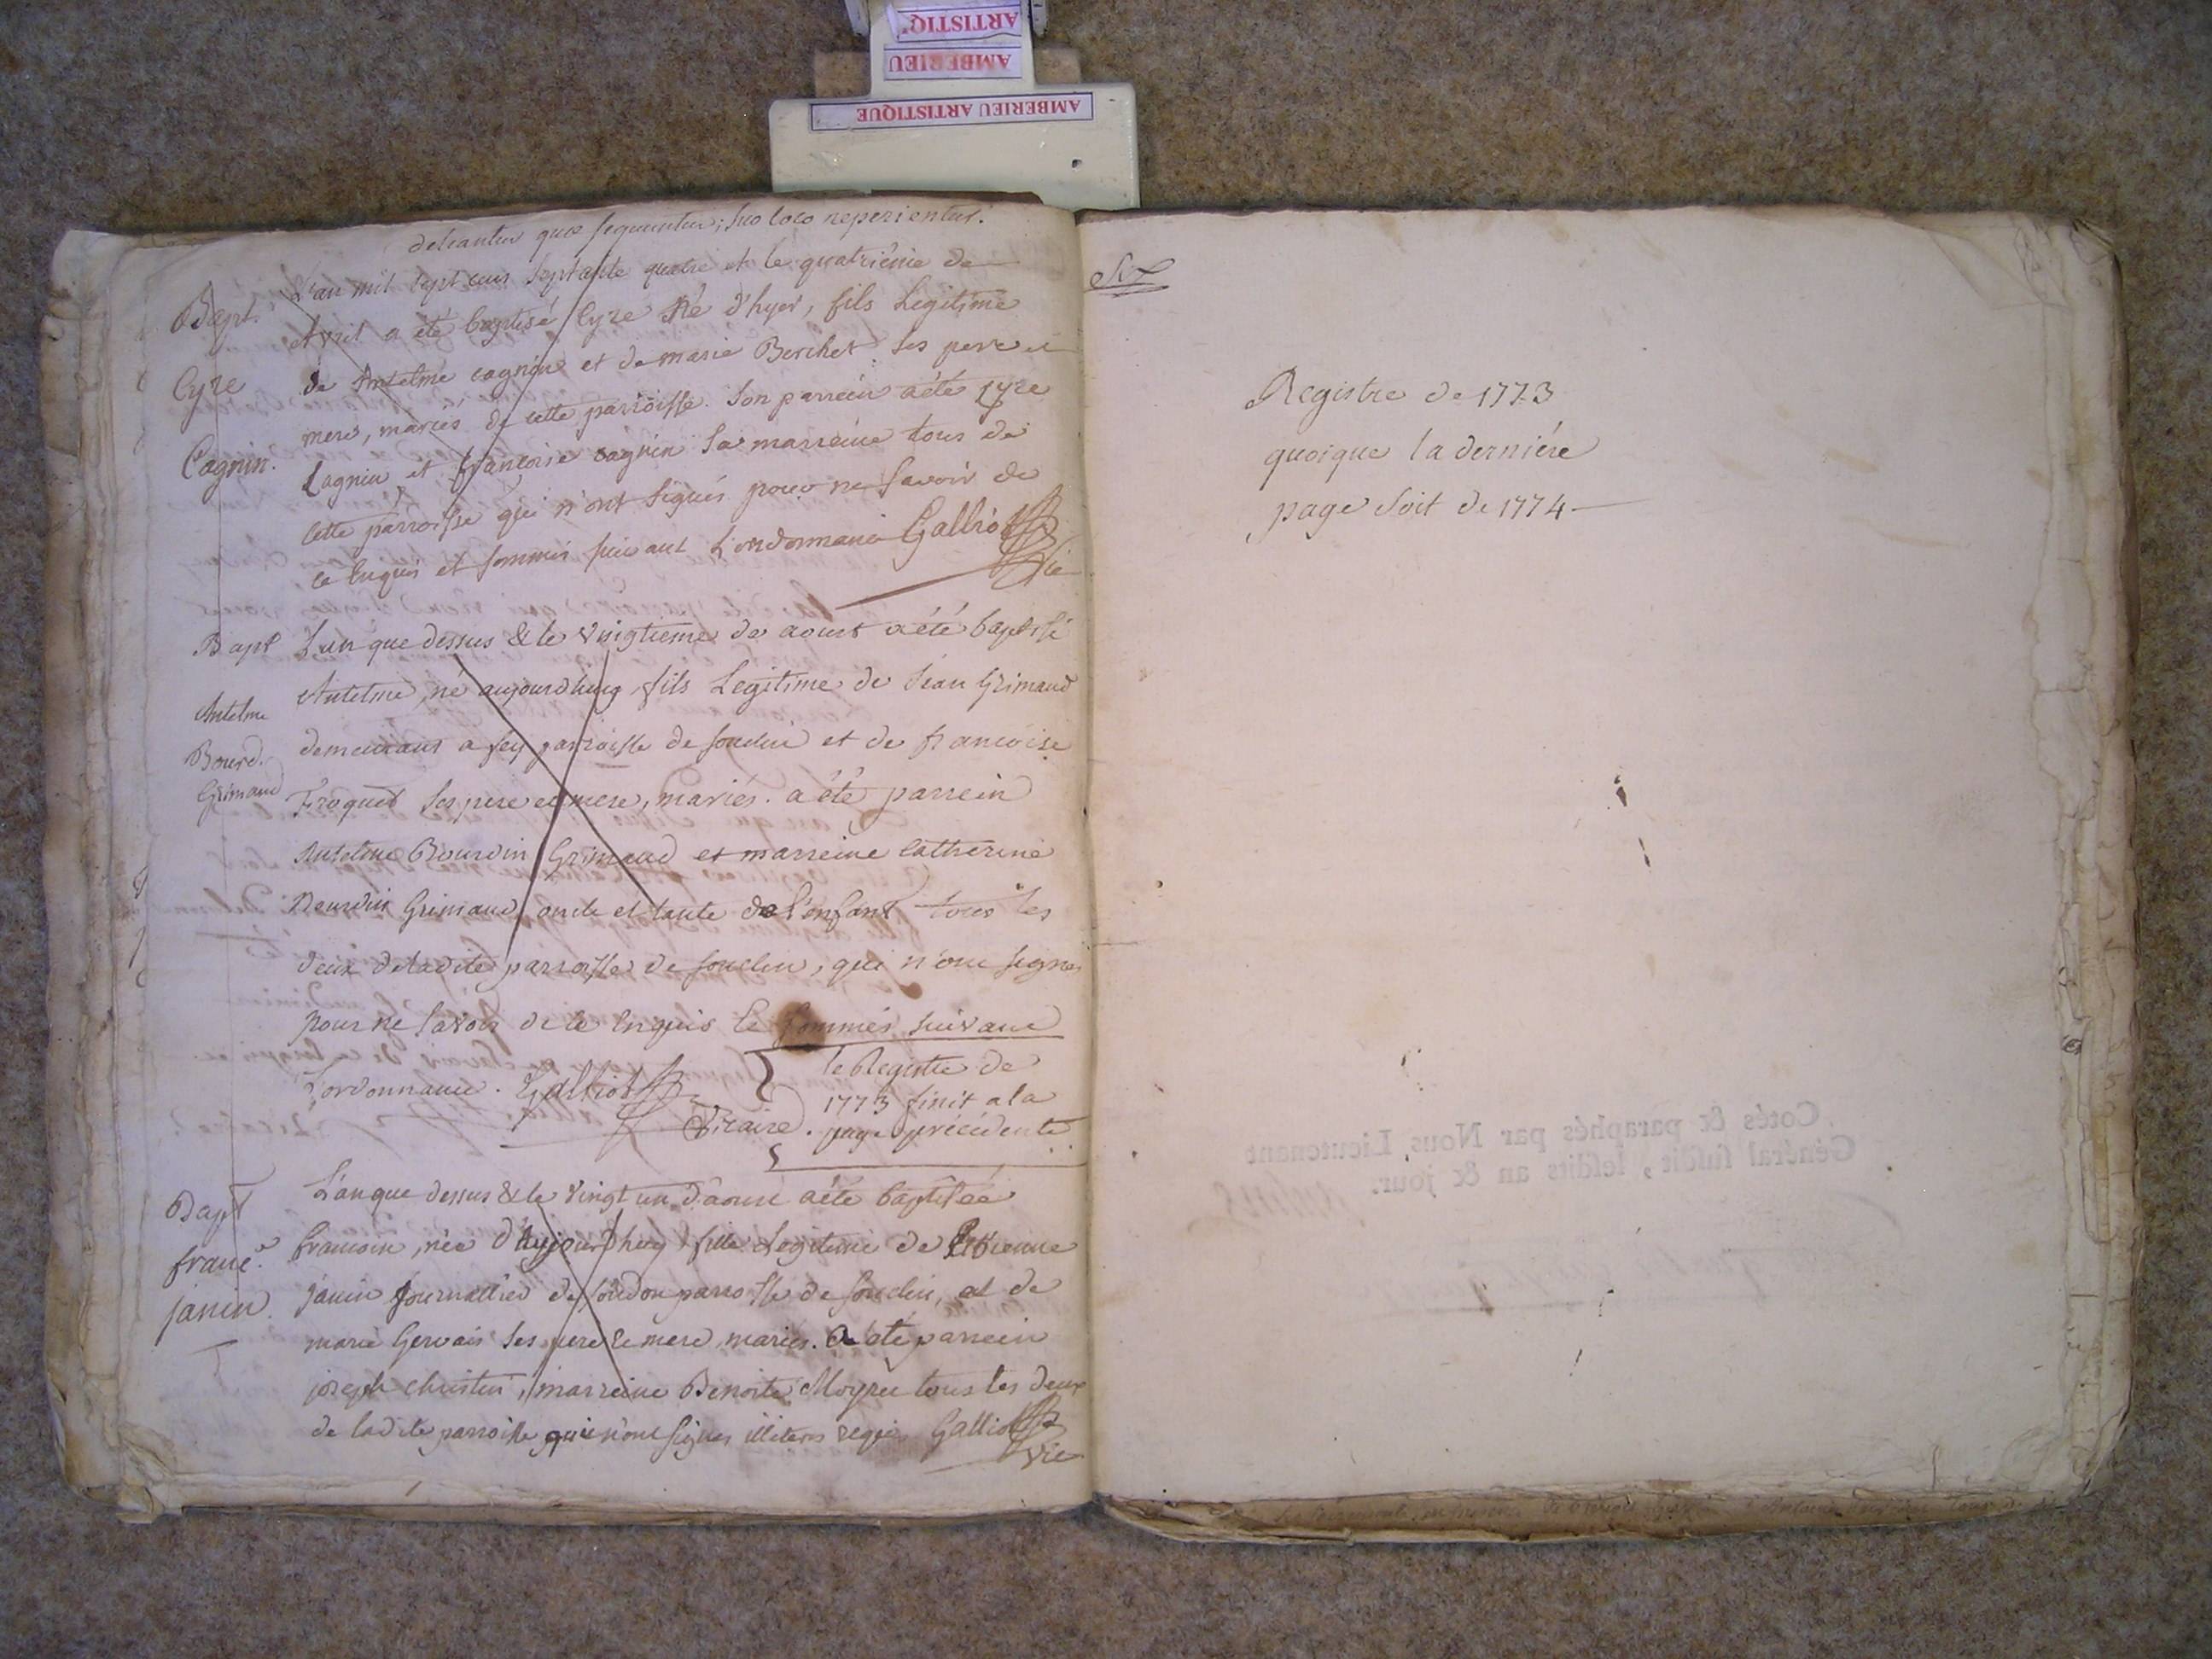 ARTISTIQ'
AMBERIEU
AMBERIEU ARTISTIQUE
deleantur quæ sequuntur; suo loco reperientur.
Bapt.
Cyre
Cagnin.
L'an mil sept cens septante quatre et le quatrième de
Avril a été baptisé Cyre Né d'hyer, fils Legitime
de Antelme cagnin et de marie Berchet ses pere et
mere, mariés de cette parroisse. Son parrein a été Cyre
Cagnin et françoise cagnin Sa marreine tous de
cette parroisse qui n'ont signés pour ne savoir de
ce Enquis et sommés suivant L'ordonnance Galliot
Vic
Bapt
Antelme
Bourd.
Grimaud
L'an que dessus & le vingtieme de aoust a été baptisé
Antelme, né aujourdhuy, fils Legitime de Jean Grimaud
demeurant a fey parroisse de souclin et de francoise
ses pere et mere, mariés. a été parrein
Antelme Bourdin Grimaud et marreine catherine
Bourdin Grimaud, oncle et tante de l'enfant tous les
deux de ladite parroisse de souclin, qui n'ont signés
pour ne savoir de ce Enquis Et sommés suivant
L'ordonnance. Galliot
Vicaire.
le Registre de
1773 finit a la
page précédente
Bapt
franc.e
janin.
L'an que dessus & le vingt un d'aoust a été baptisée
francoise, née d'aujourdhuy fille Legitime de Etienne
janin journallier de soudon parroisse de souclin, et de
marie Gervais ses pere & mere, mariés. a été parrein
joseph christin, marreine Benoite Moyret tous les deux
de ladite parroisse qui n'ont signés Galliot
vic
Six
Registre de 1773
quoique la derniére
page soit de 1774
Cotés & paraphés par Nous, Lieutenant
Général susdit, lesdits an & jour.